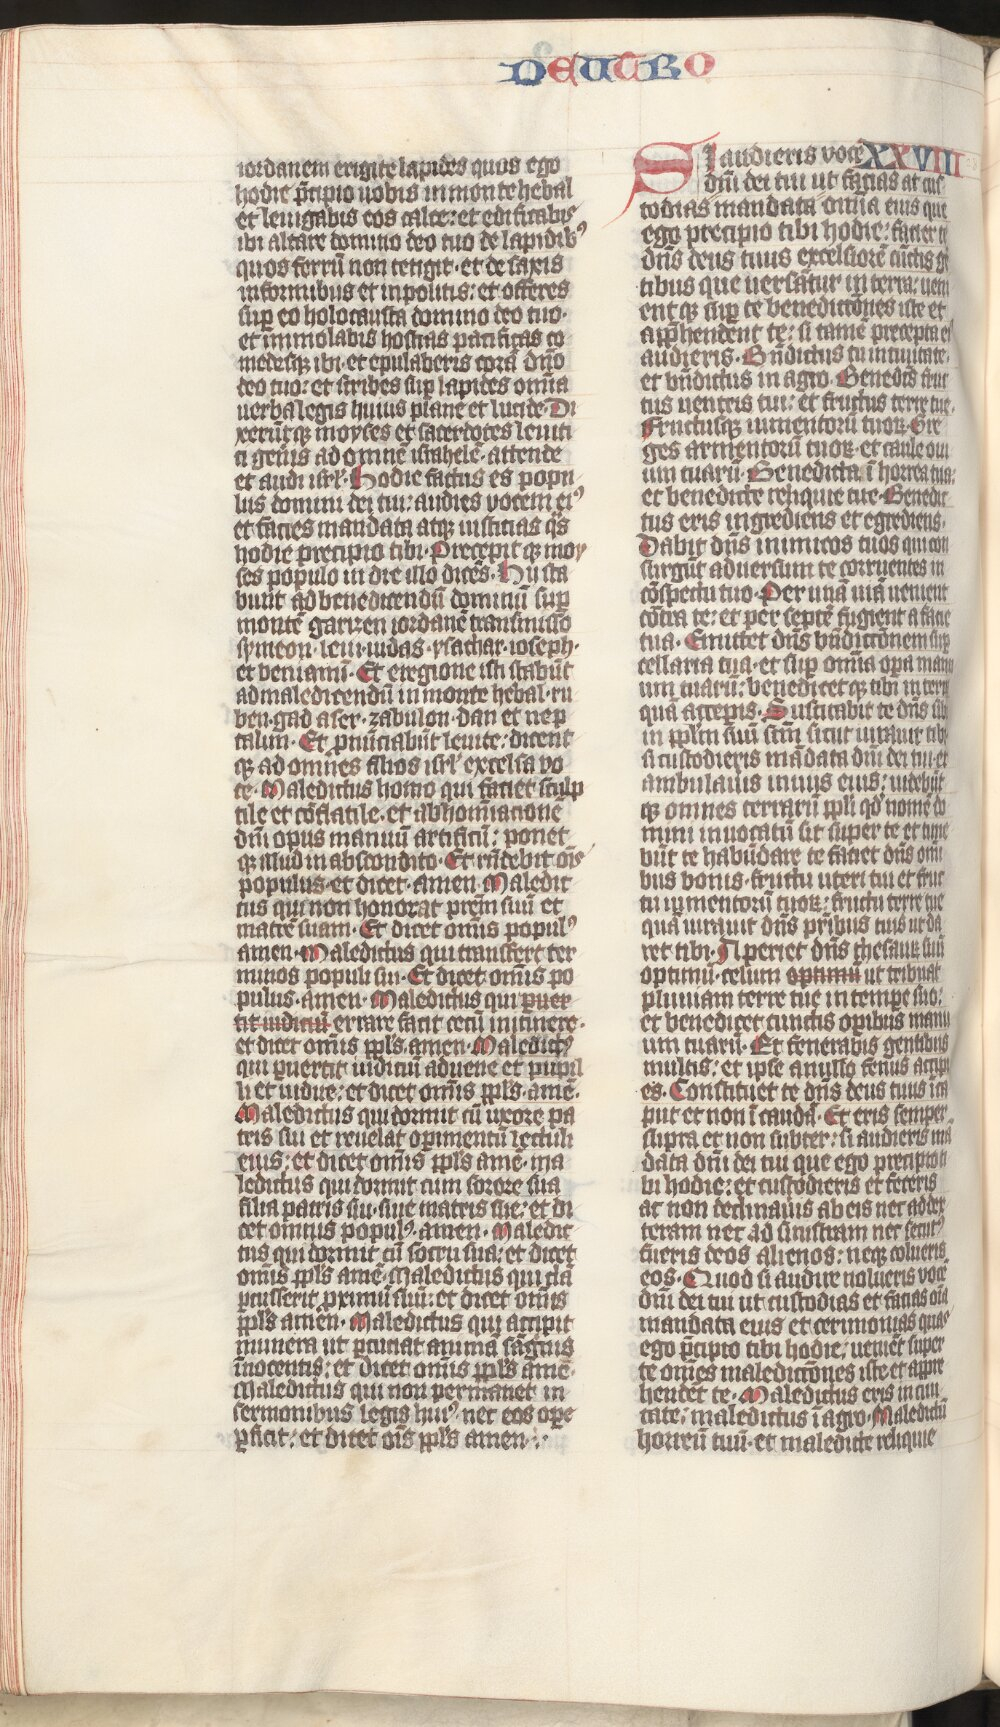 DEUTRO
iordanem erigite lapides quos ego
hodie p̄cipio uobis in monte hebal
et leuigabis eos calce: et edificabis
ibi altare domino deo tuo de lapidibꝰ
quos ferrū non tetigit· et de saxis
informibus et inpolitis: et offeres
sup̄ eo holocausta domino deo tuo·
et immolabis hostias pacificas co
medesqꝫ ibi· et epulaberis corā dn̄o
deo tuo: et scribes sup̄ lapides omīa
uerba legis huius plane et lucide· Di
xerūtqꝫ moyses et sacerdotes leuiti
ci geñis ad omnē israhelē· attende
et audi isrl̓· Hodie factus es popu
lus domini dei tui: audies vocem eiꝰ
et facies mandata atqꝫ iusticias q̄s
hodie precipio tibi· Precepitqꝫ moy
ses populo in die illo dicēs· Hij sta
bunt ad benedicendū dominū sup̄
monte garizen iordanē transmisso
symeon· leui· iudas· ysachar· ioseph·
et beniamī· Et eregione isti stabūt
ad maledicendū in monte hebal· ru
ben· gad· aser· zabulon· dan et nep
talim· Et p̄nūciabūt leuite: dicent
qꝫ ad omnes filios isrl̓ excelsa vo
ce· Maledictus homo qui faciet sculp
tile et cōflatile· et abhomīacionē
dn̄i opus manuū artificū: ponet
qꝫ illud in abscondito· Et rn̄debit oīs
populus et dicet· amen· Maledic
tus qui non honorat prēm suū et
matrē suam· Et dicet omīs popul̓ꝰ
amen· Maledictus qui transfert ter
minos populi sui· Et dicet omīs po
pulus· amen· Maledictus qui puer
tit iudiciū errare facit cecū in itinere·
et dicet omīs ppl̄s amen· Maledictꝰ
qui puertit iudiciū aduene et pupil
li et uidue: et dicet omīs ppl̄s· amē·
Maledictus qui dormit cū uxore pa
tris sui et reuelat op̄imentū lectuli
eius: et dicet omīs ppl̄s amē· ma
ledictus qui dormit cum sorore sua
filia patris sui· siue matris sue: et di
cet omnis popul̓ꝰ· amen· Maledic
tus qui dormit cū socru sua: et dicet
omīs ppl̄s amē· Maledictus qui clā
p̄cusserit p̄ximū suū: et dicet omīs
ppl̄s amen· Maledictus qui accipit
munera ut p̄cuciat animā sāguīs
īnocentis: et dicet omīs ppl̄s amē·
Maledictus qui non permanet in
sermonibus legis huiꝰ· nec eos ope
p̄ficit: et dicet oīs ppl̄s amen·:·
Si audieris vocē XXVIII
dn̄i dei tui ut facias ac cus
todias mandata omīa eius que
ego precipio tibi hodie: faciet te
dn̄s deus tuus excelsiorē cūctis gē
tibus que uersātur in terra: ueni
entqꝫ sup̄ te benedictōnes iste et
app̄hendent te: si tamē precepta eiꝰ
audieris· Bn̄dictus tu in ciuitate·
et bn̄dictus in agro· Benedcs̄ fruc
tus uentris tui: et fructus terre tue·
Fructusqꝫ iumentorū tuoꝝ· Gre
ges armentorū tuoꝝ· et caule oui
um tuarū· Benedicta ī horrea tua:
et benedicte reliquie tue· Benedic
tus eris ingrediens et egrediens·
Dabit dn̄s inimicos tuos qui con
surgūt aduersum te corruentes in
cōspectu tuo· Per unā uiā uenient
cōtra te: et per septē fugient a facie
tua· Emittet dn̄s bn̄dictōnem sup̄
cellaria tua· et sup̄ omīa op̄a manu
um tuarū: benedicetqꝫ tibi in terra
quā acceperis· Suscitabit te dn̄s sibi
in ppl̄m suū sc̄m sicut iurauit tibi
si custodieris mādata dn̄i dei tui· et
ambulauis in uijs eius: uidebūt
qꝫ omnes terrarū ppl̄i qd̓ nomē do
mini inuocatū sit super te et time
būt te habūdare te faciet dn̄s omī
bus bonis· fructu uteri tui et fruc
tu iumentorū tuoꝝ: fructu terre tue
quā iurauit dn̄s pr̄ibus tuis ut da
ret tibi· Aperiet dn̄s thesauꝝ suū
optimū· celum optimū ut tribuat
pluuiam terre tue in tempe suo:
et benedicet cunctis op̄ibus manu
um tuarū· Et fenerabis gentibus
multis: et ipse a nullo fenus accipi
es· Constituet te dn̄s deus tuus ī ca
put et non ī caudā· Et eris semper
supra et non subter: si audieris mā
data dn̄i dei tui que ego precipio ti
bi hodie: et custodieris et feceris
ac non declinauis ab eis nec ad dex
teram nec ad sinistram nec secutꝰ
fueris deos alienos: neqꝫ colueris
eos· Quod si audire nolueris vocē
dn̄i dei tui ut custodias et facias oīa
mandata eius et cerimonias quas
ego p̄cipio tibi hodie: ueniēt super
te omēs maledictōnes iste et appre
hendēt te· Maledictus eris in ciui
tate: maledictus ī agro· Maledictū
horreū tuū· et maledicte reliquie